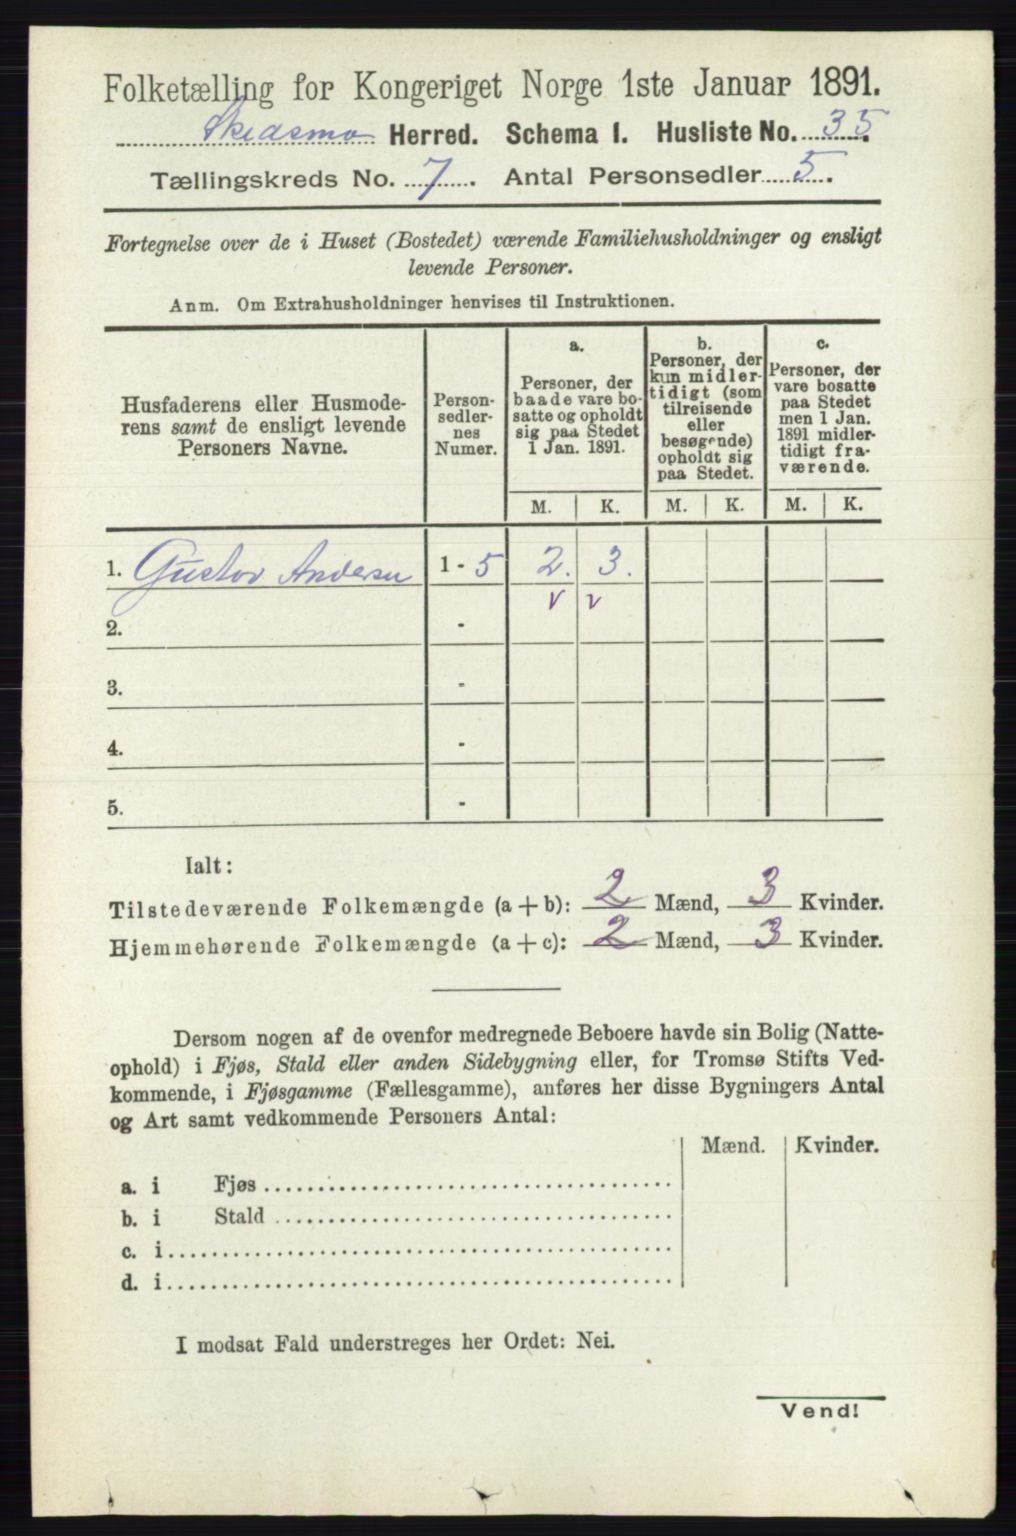 Folketælling for Kongeriget Norge 1ste Januar 1891.
Skedsmo Herred. Schema I. Husliste No. 35.
Tællingskreds No. 7. Antal Personsedler 5.
Fortegnelse over de i Huset (Bostedet) værende Familiehusholdninger og ensligt
levende Personer.
Anm. Om Extrahusholdninger henvises til Instruktionen.
Husfaderens eller Husmode-
rens samt de ensligt levende
Personers Navne.
Person-
sedler-
nes
Numer.
a.
Personer, der
baade vare bo-
satte og opholdt
sig paa Stedet
1 Jan. 1891.
b.
Personer, der
kun midler-
tidigt (som
tilreisende
eller
besøgende)
opholdt sig
paa Stedet.
c.
Personer, der
vare bosatte
paa Stedet
men 1 Jan.
1891 midler-
tidigt fra-
værende.
M. K. M. K. M. K.
1. Gustav Andersen 1 - 5 2. 3.
v v
2. -
3. -
4. -
5. -
Ialt:
Tilstedeværende Folkemængde (a + b): 2 Mænd, 3 Kvinder.
Hjemmehørende Folkemængde (a + c): 2 Mænd, 3 Kvinder.
Dersom nogen af de ovenfor medregnede Beboere havde sin Bolig (Natte-
ophold) i Fjøs, Stald eller anden Sidebygning eller, for Tromsø Stifts Ved-
kommende, i Fjøsgamme (Fællesgamme), anføres her disse Bygningers Antal
og Art samt vedkommende Personers Antal:
Mænd. Kvinder.
a. i Fjøs
b. i Stald
c. i
d. i
I modsat Fald understreges her Ordet: Nei.
Vend!